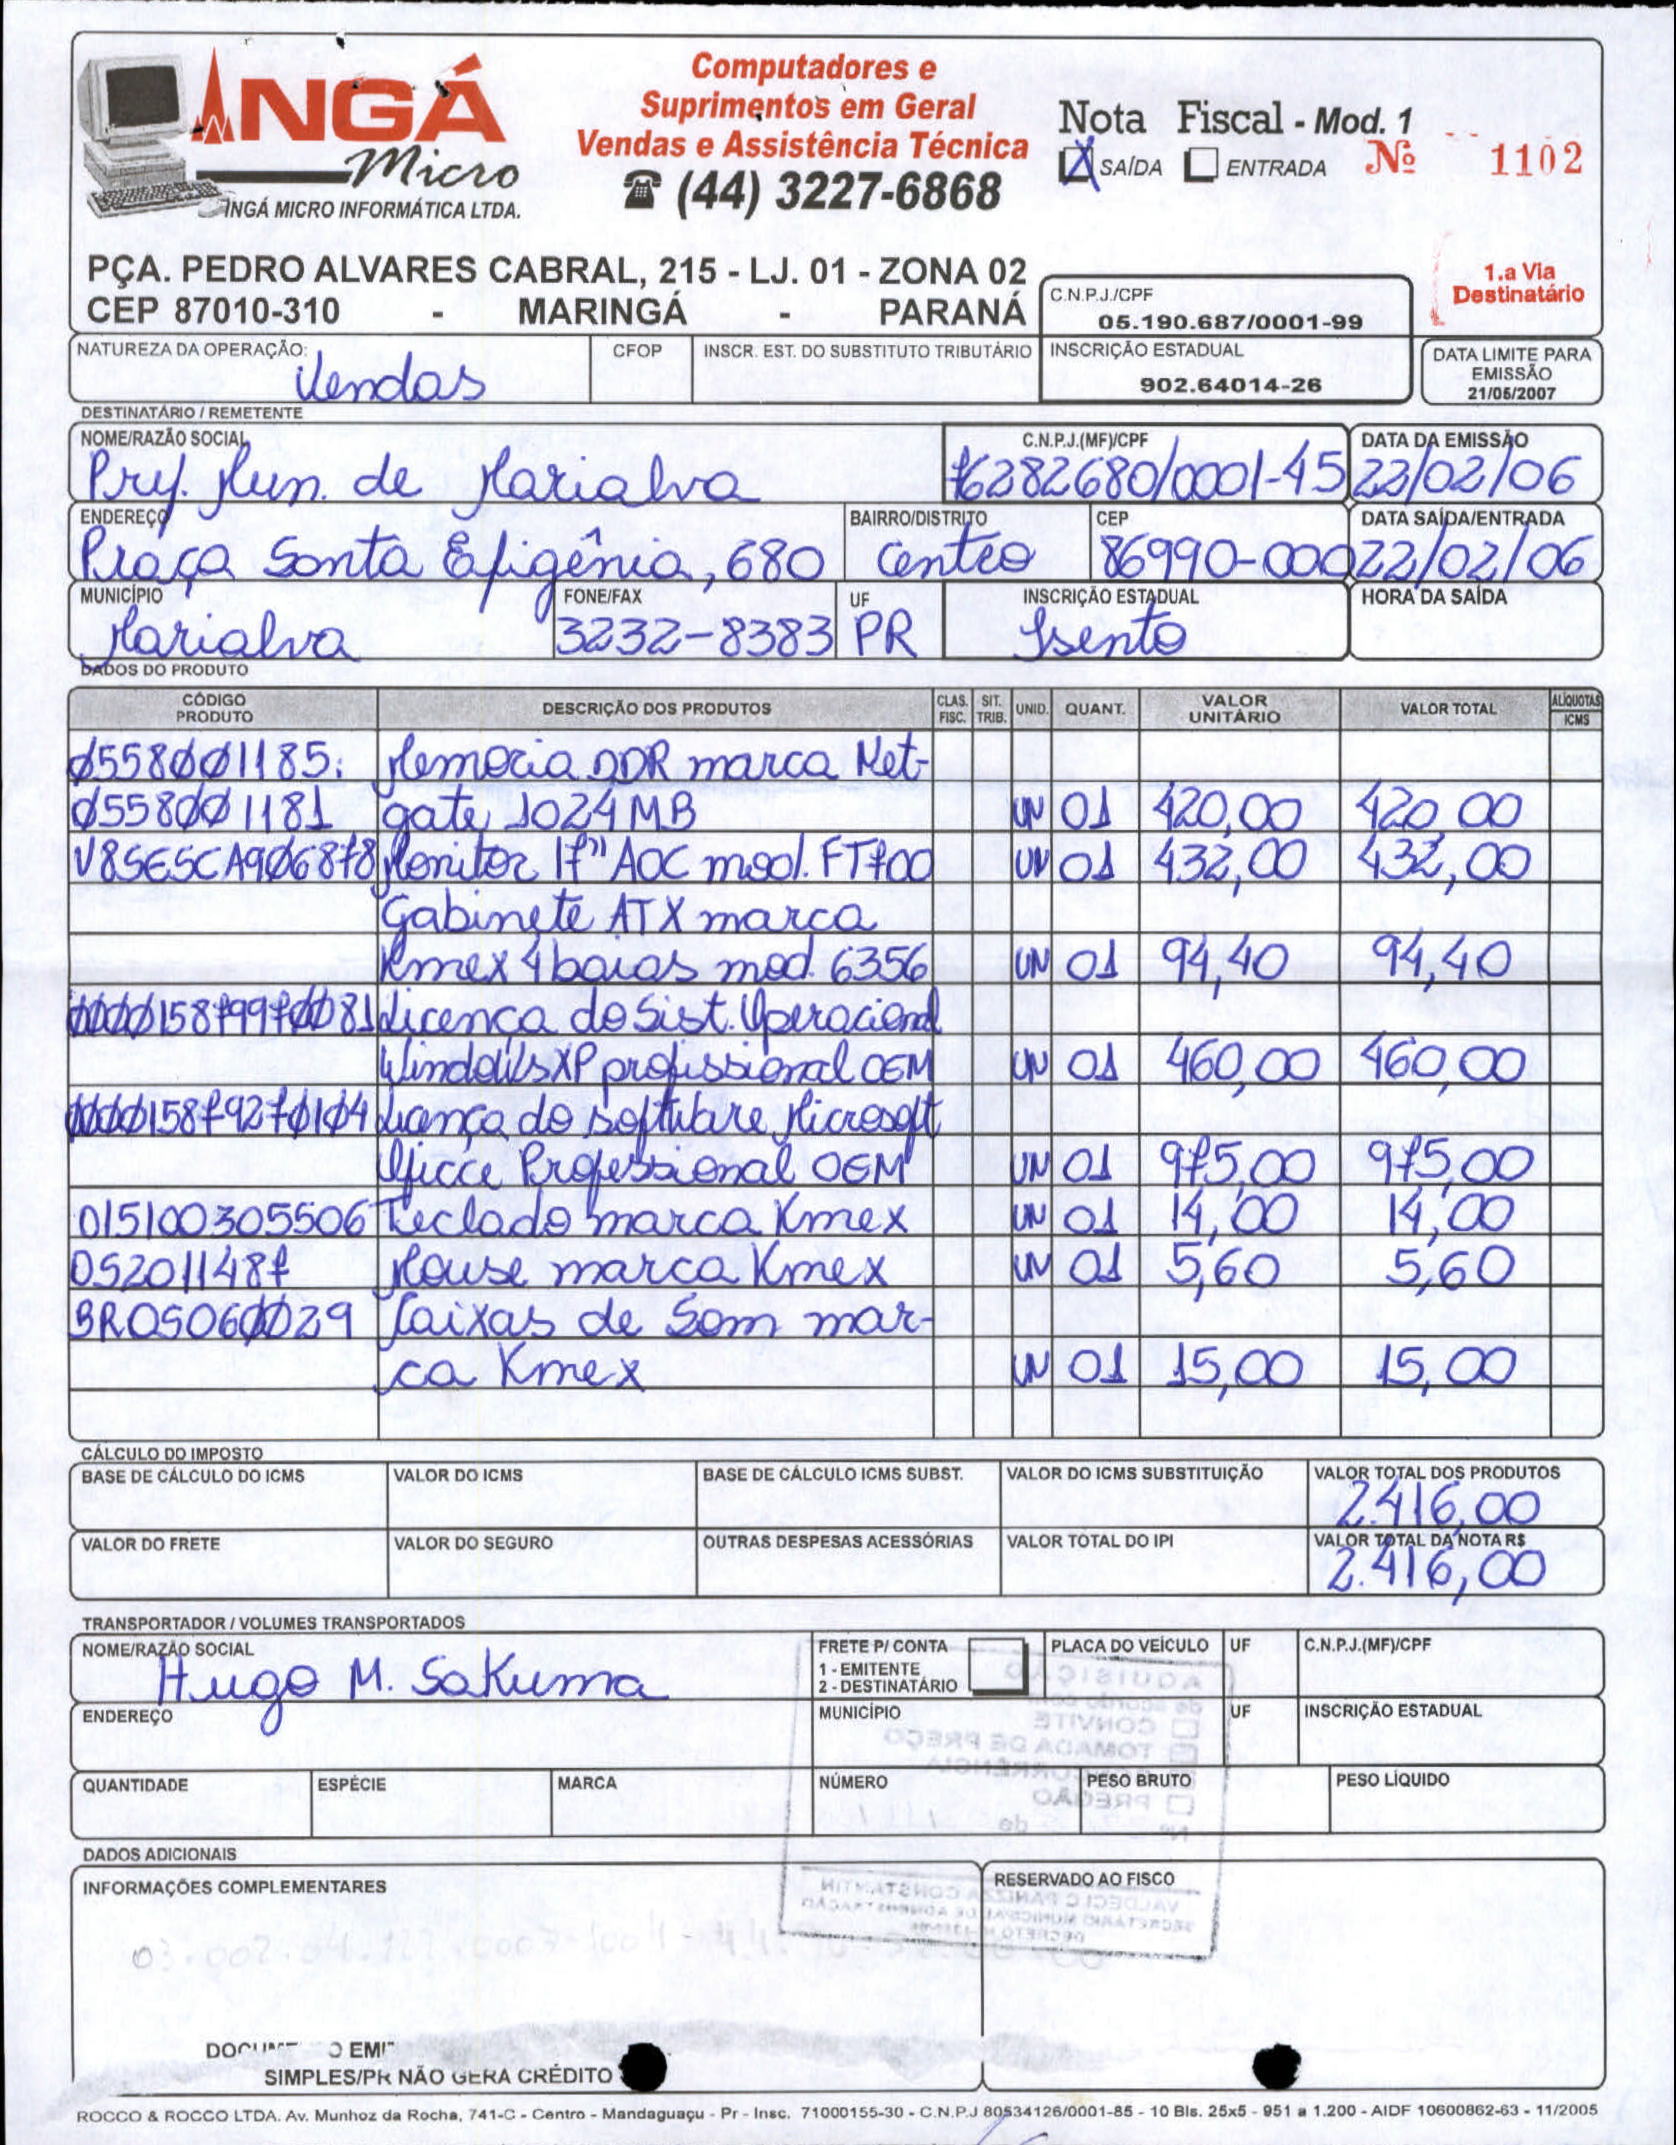 INGÁ
Micro
INGÁ MICRO INFORMÁTICA LTDA.
Computadores e
Suprimentos em Geral
Vendas e Assistência Técnica
(44) 3227-6868
Nota Fiscal - Mod. 1
X SAÍDA ENTRADA Nº 1102
PÇA. PEDRO ALVARES CABRAL, 215 - LJ. 01 - ZONA 02
CEP 87010-310 - MARINGÁ - PARANÁ
C.N.P.J./CPF
05.190.687/0001-99
1.a Via
Destinatário
NATUREZA DA OPERAÇÃO: Vendas
CFOP
INSCR. EST. DO SUBSTITUTO TRIBUTÁRIO
INSCRIÇÃO ESTADUAL
902.64014-26
DATA LIMITE PARA
EMISSÃO
21/05/2007
DESTINATÁRIO / REMETENTE
NOME/RAZÃO SOCIAL C.N.P.J.(MF)/CPF DATA DA EMISSÃO
Pref. Mun. de Marialva 76282680/0001-45 22/02/06
ENDEREÇO BAIRRO/DISTRITO CEP DATA SAÍDA/ENTRADA
Praça Santa Efigênia, 680 Centro 86990-000 22/02/06
MUNICÍPIO FONE/FAX UF INSCRIÇÃO ESTADUAL HORA DA SAÍDA
Marialva 3232-8383 PR Isento
DADOS DO PRODUTO
CÓDIGO PRODUTO DESCRIÇÃO DOS PRODUTOS CLAS. FISC. SIT. TRIB. UNID. QUANT. VALOR UNITÁRIO VALOR TOTAL ALÍQUOTAS ICMS
0558001185: Memoria DDR marca Net-
0558001181 gate 1024MB UN 01 420,00 420,00
V85E5CA906878 Monitor 17" AOC mod. FT700 UN 01 432,00 432,00
Gabinete ATX marca
Kmex 4 baias mod. 6356 UN 01 94,40 94,40
000015879970081 Licença do Sist. Operacional
Windows XP profissional OEM UN 01 460,00 460,00
000015879270104 Licença do software Microsoft
Officce Professional OEM UN 01 975,00 975,00
015100305506 Teclado marca Kmex UN 01 14,00 14,00
052011487 Mouse marca Kmex UN 01 5,60 5,60
BR05060029 Caixas de Som mar-
ca Kmex UN 01 15,00 15,00
CÁLCULO DO IMPOSTO
BASE DE CÁLCULO DO ICMS VALOR DO ICMS BASE DE CÁLCULO ICMS SUBST. VALOR DO ICMS SUBSTITUIÇÃO VALOR TOTAL DOS PRODUTOS
2.416,00
VALOR DO FRETE VALOR DO SEGURO OUTRAS DESPESAS ACESSÓRIAS VALOR TOTAL DO IPI VALOR TOTAL DA NOTA R$
2.416,00
TRANSPORTADOR / VOLUMES TRANSPORTADOS
NOME/RAZÃO SOCIAL FRETE P/ CONTA PLACA DO VEÍCULO UF C.N.P.J.(MF)/CPF
Hugo M. Sakuma
1 - EMITENTE
2 - DESTINATÁRIO
ENDEREÇO MUNICÍPIO UF INSCRIÇÃO ESTADUAL
QUANTIDADE ESPÉCIE MARCA NÚMERO PESO BRUTO PESO LÍQUIDO
AQUISIÇÃO
CONVITE
TOMADA DE PREÇO
PREGÃO
DADOS ADICIONAIS
INFORMAÇÕES COMPLEMENTARES RESERVADO AO FISCO
SIMPLES/PR NÃO GERA CRÉDITO
ROCCO & ROCCO LTDA. Av. Munhoz da Rocha, 741-C - Centro - Mandaguaçu - Pr - Insc. 71000155-30 - C.N.P.J 80534126/0001-85 - 10 Bls. 25x5 - 951 a 1.200 - AIDF 10600862-63 - 11/2005